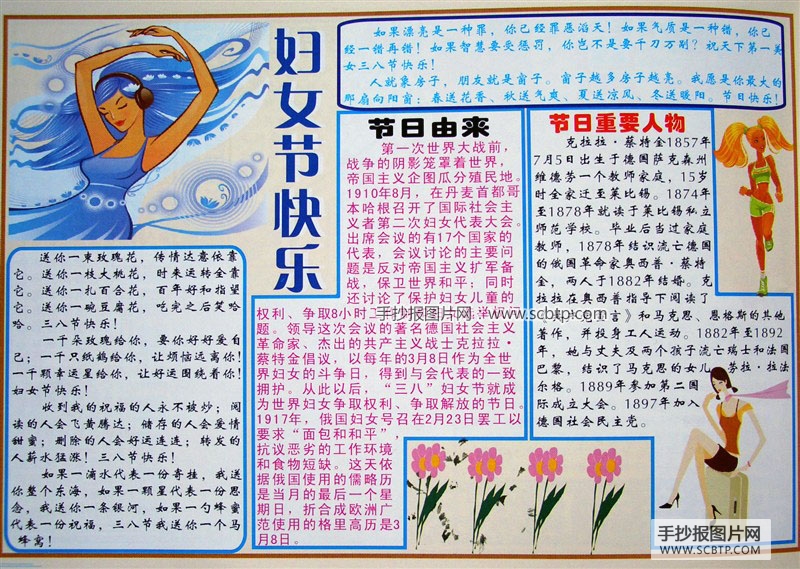 妇女节快乐
如果漂亮是一种罪，你已经罪恶滔天！如果气质是一种错，你已
经一错再错！如果智慧要受惩罚，你岂不是要千刀万剐？祝天下第一美
女三八节快乐！
人就象房子，朋友就是窗子。窗子越多房子越亮。我愿是你最大的
那扇向阳窗：春送花香、秋送气爽、夏送凉风、冬送暖阳。节日快乐！
送你一束玫瑰花，传情达意依靠
它。送你一枝大桃花，时来运转全靠
它。送你一扎百合花，百年好和指望
它。送你一碗豆腐花，吃完之后笑哈
哈。三八节快乐！
一千朵玫瑰给你，要你好好爱自
己；一千只纸鹤给你，让烦恼远离你！
一千颗幸运星给你，让好运围绕着你！
妇女节快乐！
收到我的祝福的人永不被炒；阅
读的人会飞黄腾达；储存的人会爱情
甜蜜；删除的人会好运连连；转发的
人薪水猛涨！三八节快乐！
如果一滴水代表一份寄挂，我送
你整个东海，如果一颗星代表一份思
念，我送你一条银河，如果一勺蜂蜜
代表一份祝福，三八节我送你一个马
蜂窝！
节日由来
第一次世界大战前，
战争的阴影笼罩着世界，
帝国主义企图瓜分殖民地。
1910年8月，在丹麦首都哥
本哈根召开了国际社会主
义者第二次妇女代表大会。
出席会议的有17个国家的
代表，会议讨论的主要问
题是反对帝国主义扩军备
战，保卫世界和平；同时
还讨论了保护妇女儿童的
权利、争取8小时
题。领导这次会议的著名德国社会主义
革命家、杰出的共产主义战士克拉拉·
蔡特金倡议，以每年的3月8日作为全世
界妇女的斗争日，得到与会代表的一致
拥护。从此以后，“三八”妇女节就成
为世界妇女争取权利、争取解放的节日。
1917年，俄国妇女号召在2月23日罢工以
要求“面包和和平”，
抗议恶劣的工作环境
和食物短缺。这天依
据俄国使用的儒略历
是当月的最后一个星
期日，折合成欧洲广
范使用的格里高历是3
月8日。
节日重要人物
克拉拉·蔡特金1857年
7月5日出生于德国萨克森州
维德劳一个教师家庭，15岁
时全家迁至莱比锡。1874年
至1878年就读于莱比锡私立
师范学校。毕业后当过家庭
教师，1878年结识流亡德国
的俄国革命家奥西普·蔡特
金，两人于1882年结婚。克
拉拉在奥西普指导下阅读了
言》和马克思、恩格斯的其他
著作，并投身工人运动。1882年至1892
年，她与丈夫及两个孩子流亡瑞士和法国
巴黎，结识了马克思的女儿·劳拉·拉法
尔格。1889年参加第二国
际成立大会。1897年加入
德国社会民主党。
手抄报图片网 www.scbtp.com
手抄报图片网
WWW.SCBTP.COM